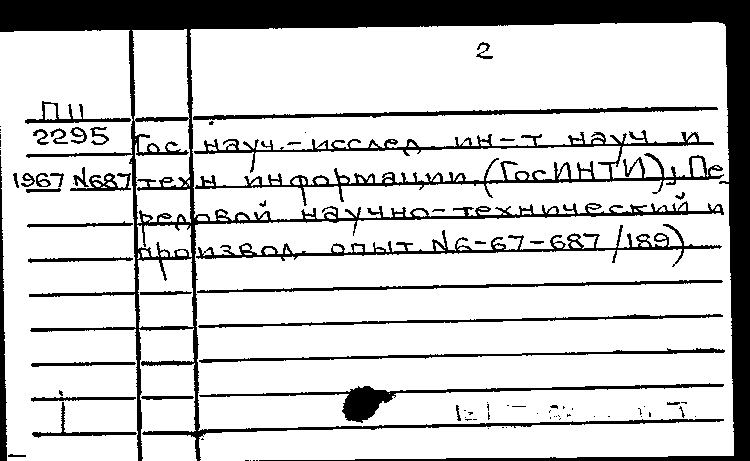 2
П11
2295 Гос. науч.-исслед. ин-т науч. и
1967 N687 техн. информации. (ГосИНТИ); Пе-
редовой научно-технический и
производ. опыт. N6-67-687/189).